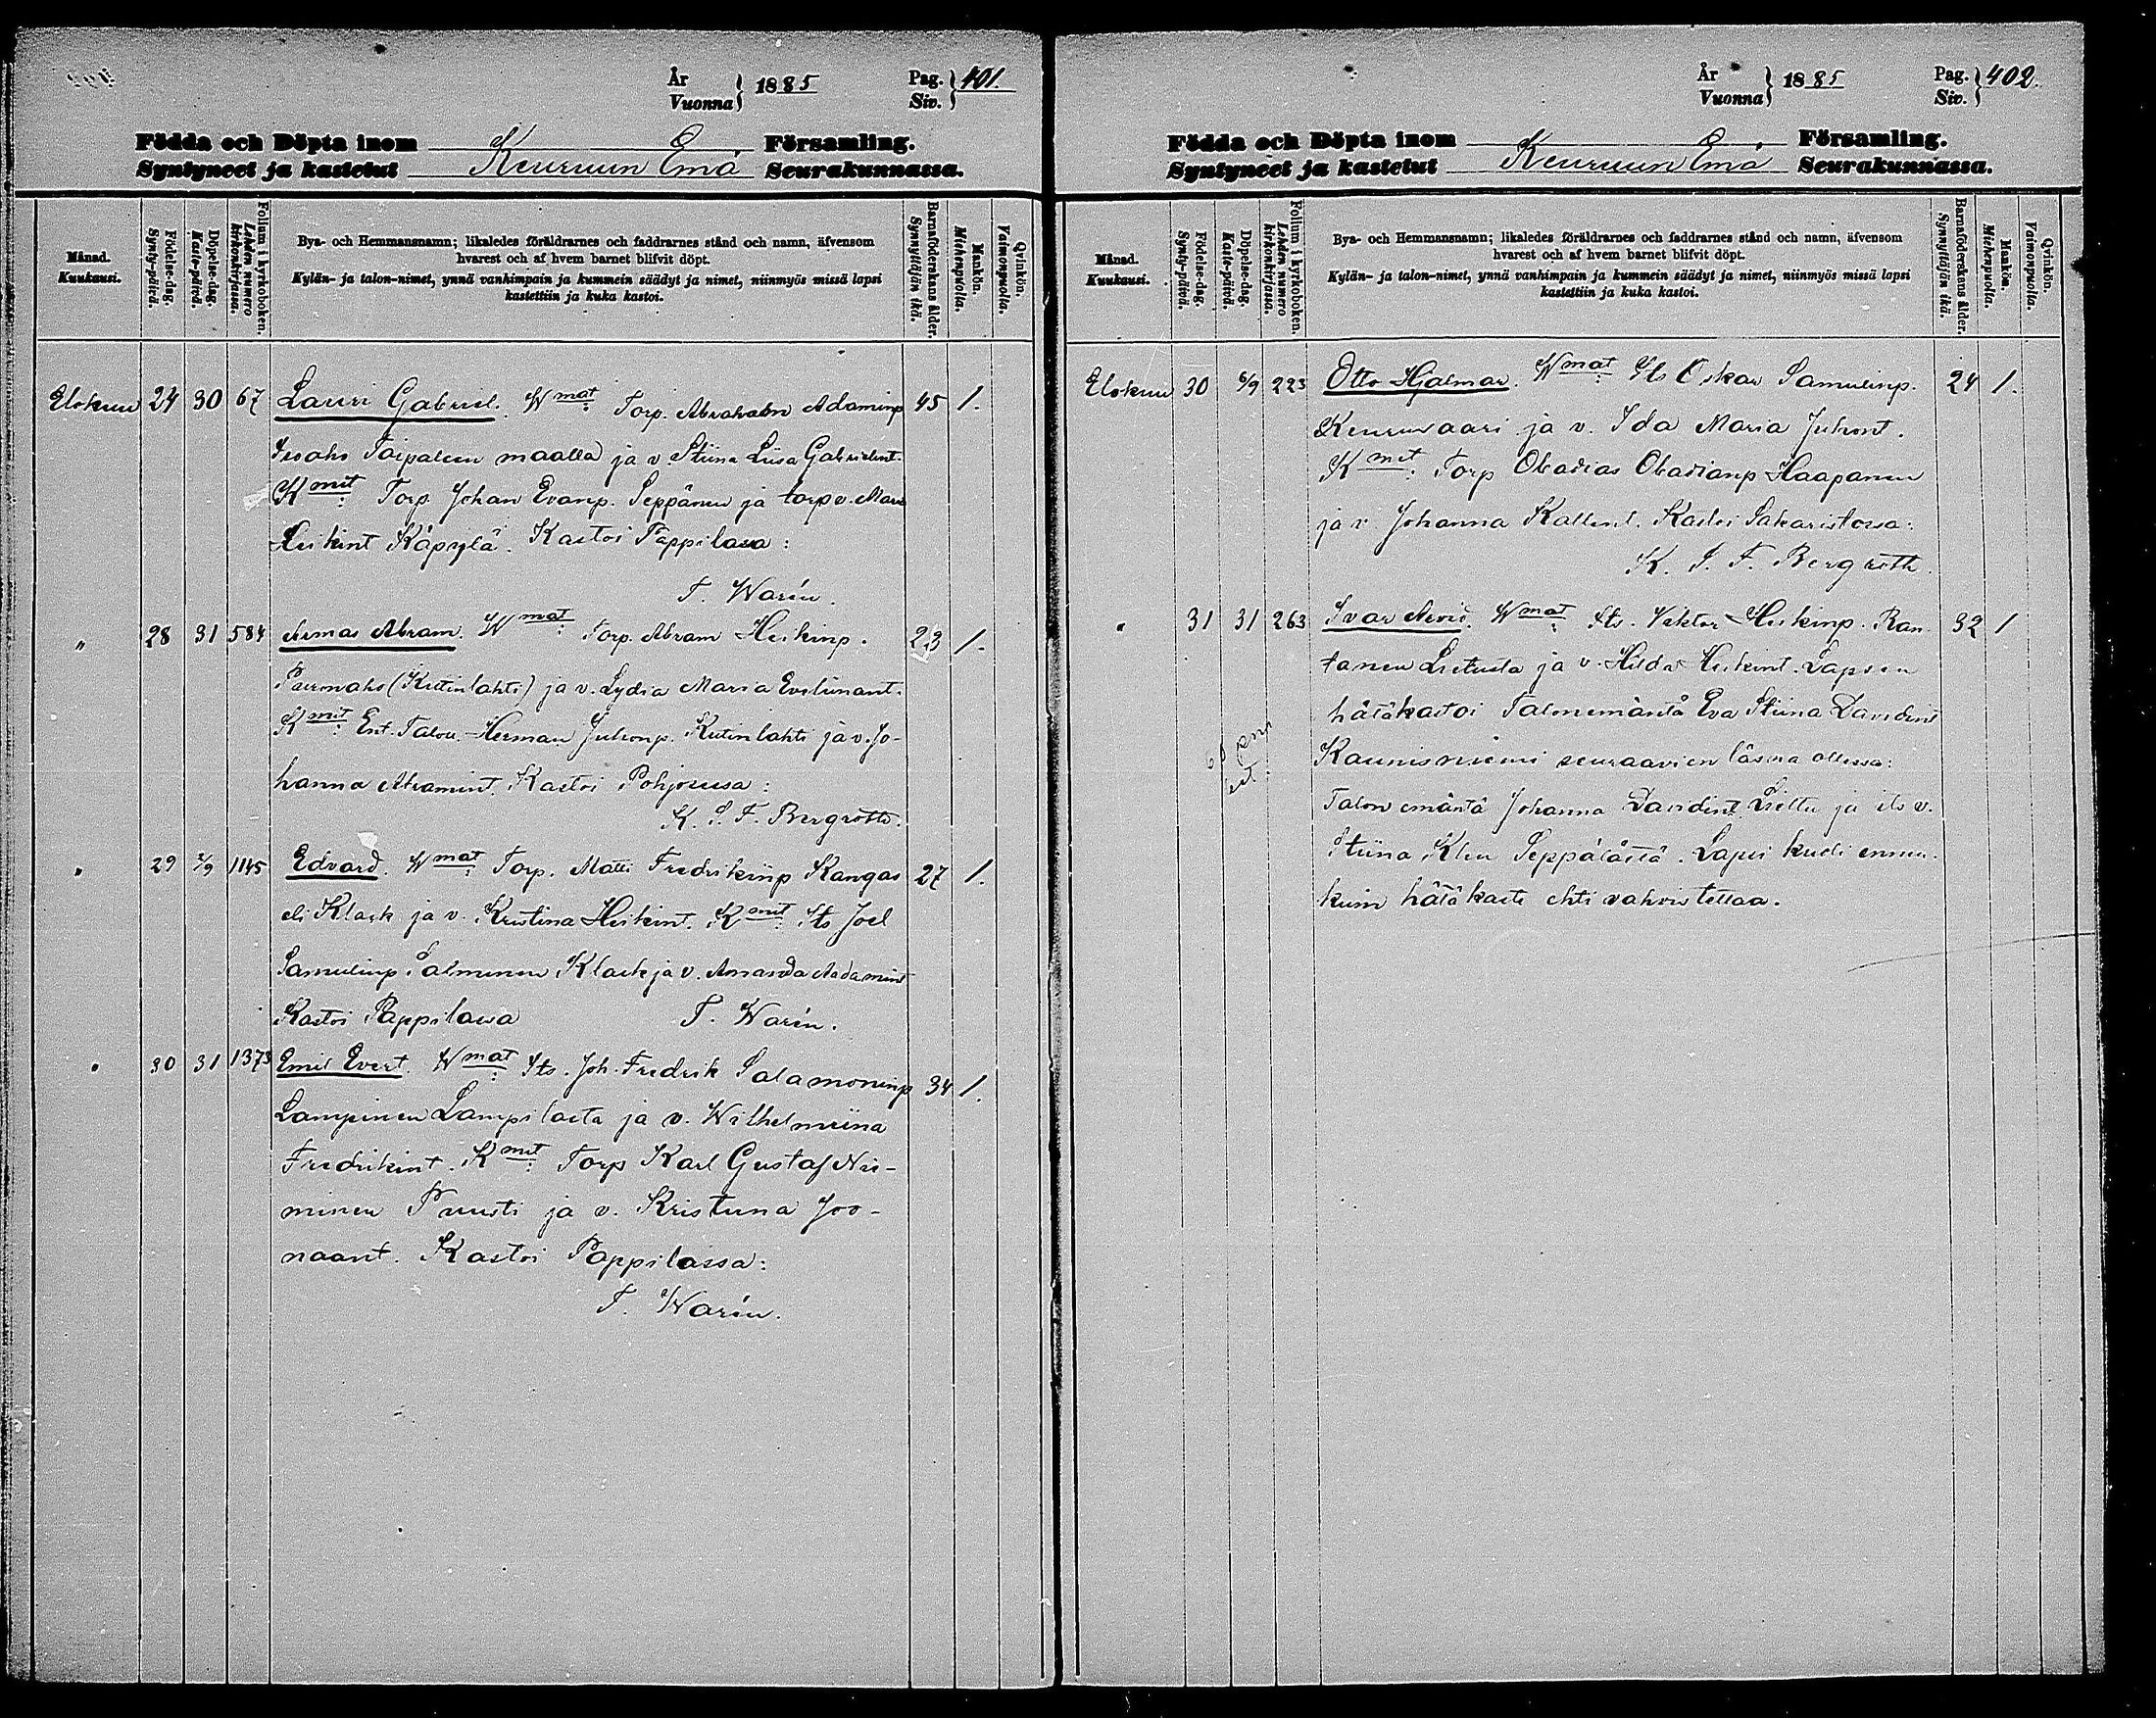 År
Vuonna } 1885 Pag.
Siv. } 401.
Födda och Döpta inom Församling.
Syntyneet ja kastetut Keuruun Emä Seurakunnassa.
Månad.
Kuukausi.
Födelse-dag.
Synty-päivä.
Döpelse-dag.
Kaste-päivä.
Folium i kyrkoboken.
Lehden numero kirkonkirjassa.
Bya- och Hemmansnamn; likaledes föräldrarnes och faddrarnes stånd och namn, äfvensom
hvarest och af hvem barnet blifvit döpt.
Kylän- ja talon-nimet, ynnä vanhimpain ja kummein säädyt ja nimet, niinmyös missä lapsi
kastettiin ja kuka kastoi.
Barnaföderskans ålder.
Synnyttäjän ikä.
Mankön.
Miehenpuolia.
Qvinkön.
Vaimonpuolia.
Elokuu 24 30 67 Lauri Gabriel. Wmat: Torp. Abraham Adaminp 45 1.
Isoaho Taipaleen maalla ja v. Stiina Liisa Gabrielint.
Kmit: Torp. Johan Evanp. Seppänen ja torp v. Maria
Heikint Käpylä. Kastoi Pappilassa:
T. Warén.
" 28 31 584 Armas Abram. Wmat: Torp. Abram Heikinp. 23 1.
(Kutinlahti) ja v. Lydia Maria Evelinant.
Kmit: Ent. Talou. Herman Juhonp. Kutinlahti ja v. Jo-
hanna Abramint. Kastoi Pohjoisessa:
K. S. F. Bergroth.
" 29 2/9 1145 Edvard. Wmat: Torp. Matti Fredrikinp Kangas 27 1.
eli Klaek ja v. Kristina Heikint. Kmit: Its Joel
Samulinp. Salminen Klaek ja v. Amanda Aadamint
Kastoi Pappilassa T. Warén.
" 30 31 1373 Emil Evert. Wmat: Its. Joh. Fredrik Salamoninp 34 1.
Lampinen Lampilasta ja v. Wilhelmiina
Fredrikint. Kmit: Torp Karl Gustaf Nie-
minen Puusti ja v. Kristiina Joo-
naant. Kastoi Pappilassa:
T. Warén.
År
Vuonna } 1885 Pag.
Siv. } 402.
Födda och Döpta inom Församling.
Syntyneet ja kastetut Keuruun Emä Seurakunnassa.
Månad.
Kuukausi.
Födelse-dag.
Synty-päivä.
Döpelse-dag.
Kaste-päivä.
Folium i kyrkoboken.
Lehden numero kirkonkirjassa.
Bya- och Hemmansnamn; likaledes föräldrarnes och faddrarnes stånd och namn, äfvensom
hvarest och af hvem barnet blifvit döpt.
Kylän- ja talon-nimet, ynnä vanhimpain ja kummein säädyt ja nimet, niinmyös missä lapsi
kastettiin ja kuka kastoi.
Barnaföderskans ålder.
Synnyttäjän ikä.
Mankön.
Miehenpuolia.
Qvinkön.
Vaimonpuolia.
Elokuu 30 6/9 223 Otto Hjalmar. Wmat: Its Oskar Samulinp. 24 1.
Keuruvaari ja v. Ida Maria Juhont.
Kmit: Torp Obadias Obadianp Haapanen
ja v. Johanna Kallent. Kastoi Sakaristossa:
K. S. F. Bergroth.
" 31 31 263 Ivar Arvid. Wmat: Its. Viktor Heikinp. Ran- 32 1
tanen Lietusta ja v. Hilda Heikint. Lapsen
hätäkastoi Talonemäntä Eva Stiina Davidint
Kaunisniemi seuraavien läsnä ollessa:
Talon emäntä Johanna Davidint Liettu ja its v.
Stiina Seppälästä. Lapsi kuoli ennen
kuin hätäkaste ehti vahvistettaa.